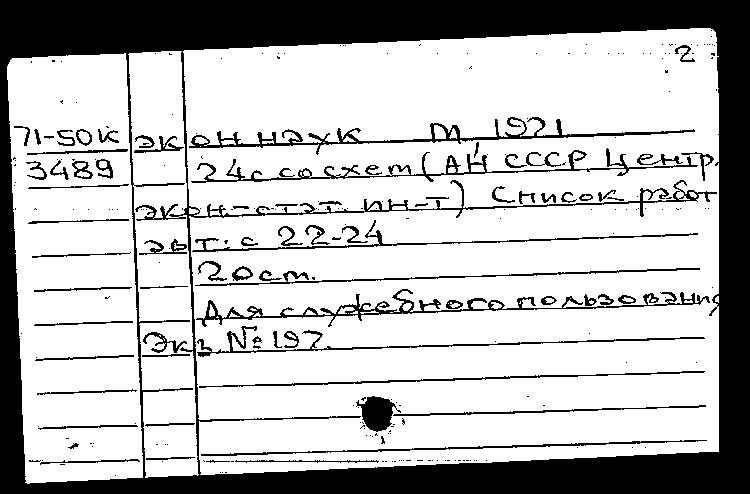 2
71-50к экон наук М, 1971
3489 24с со схем (АН СССР. Центр.
экон-стат. ин-т) Список работ
авт: с 22-24
20 см.
Для служебного пользования
Экз. №197.